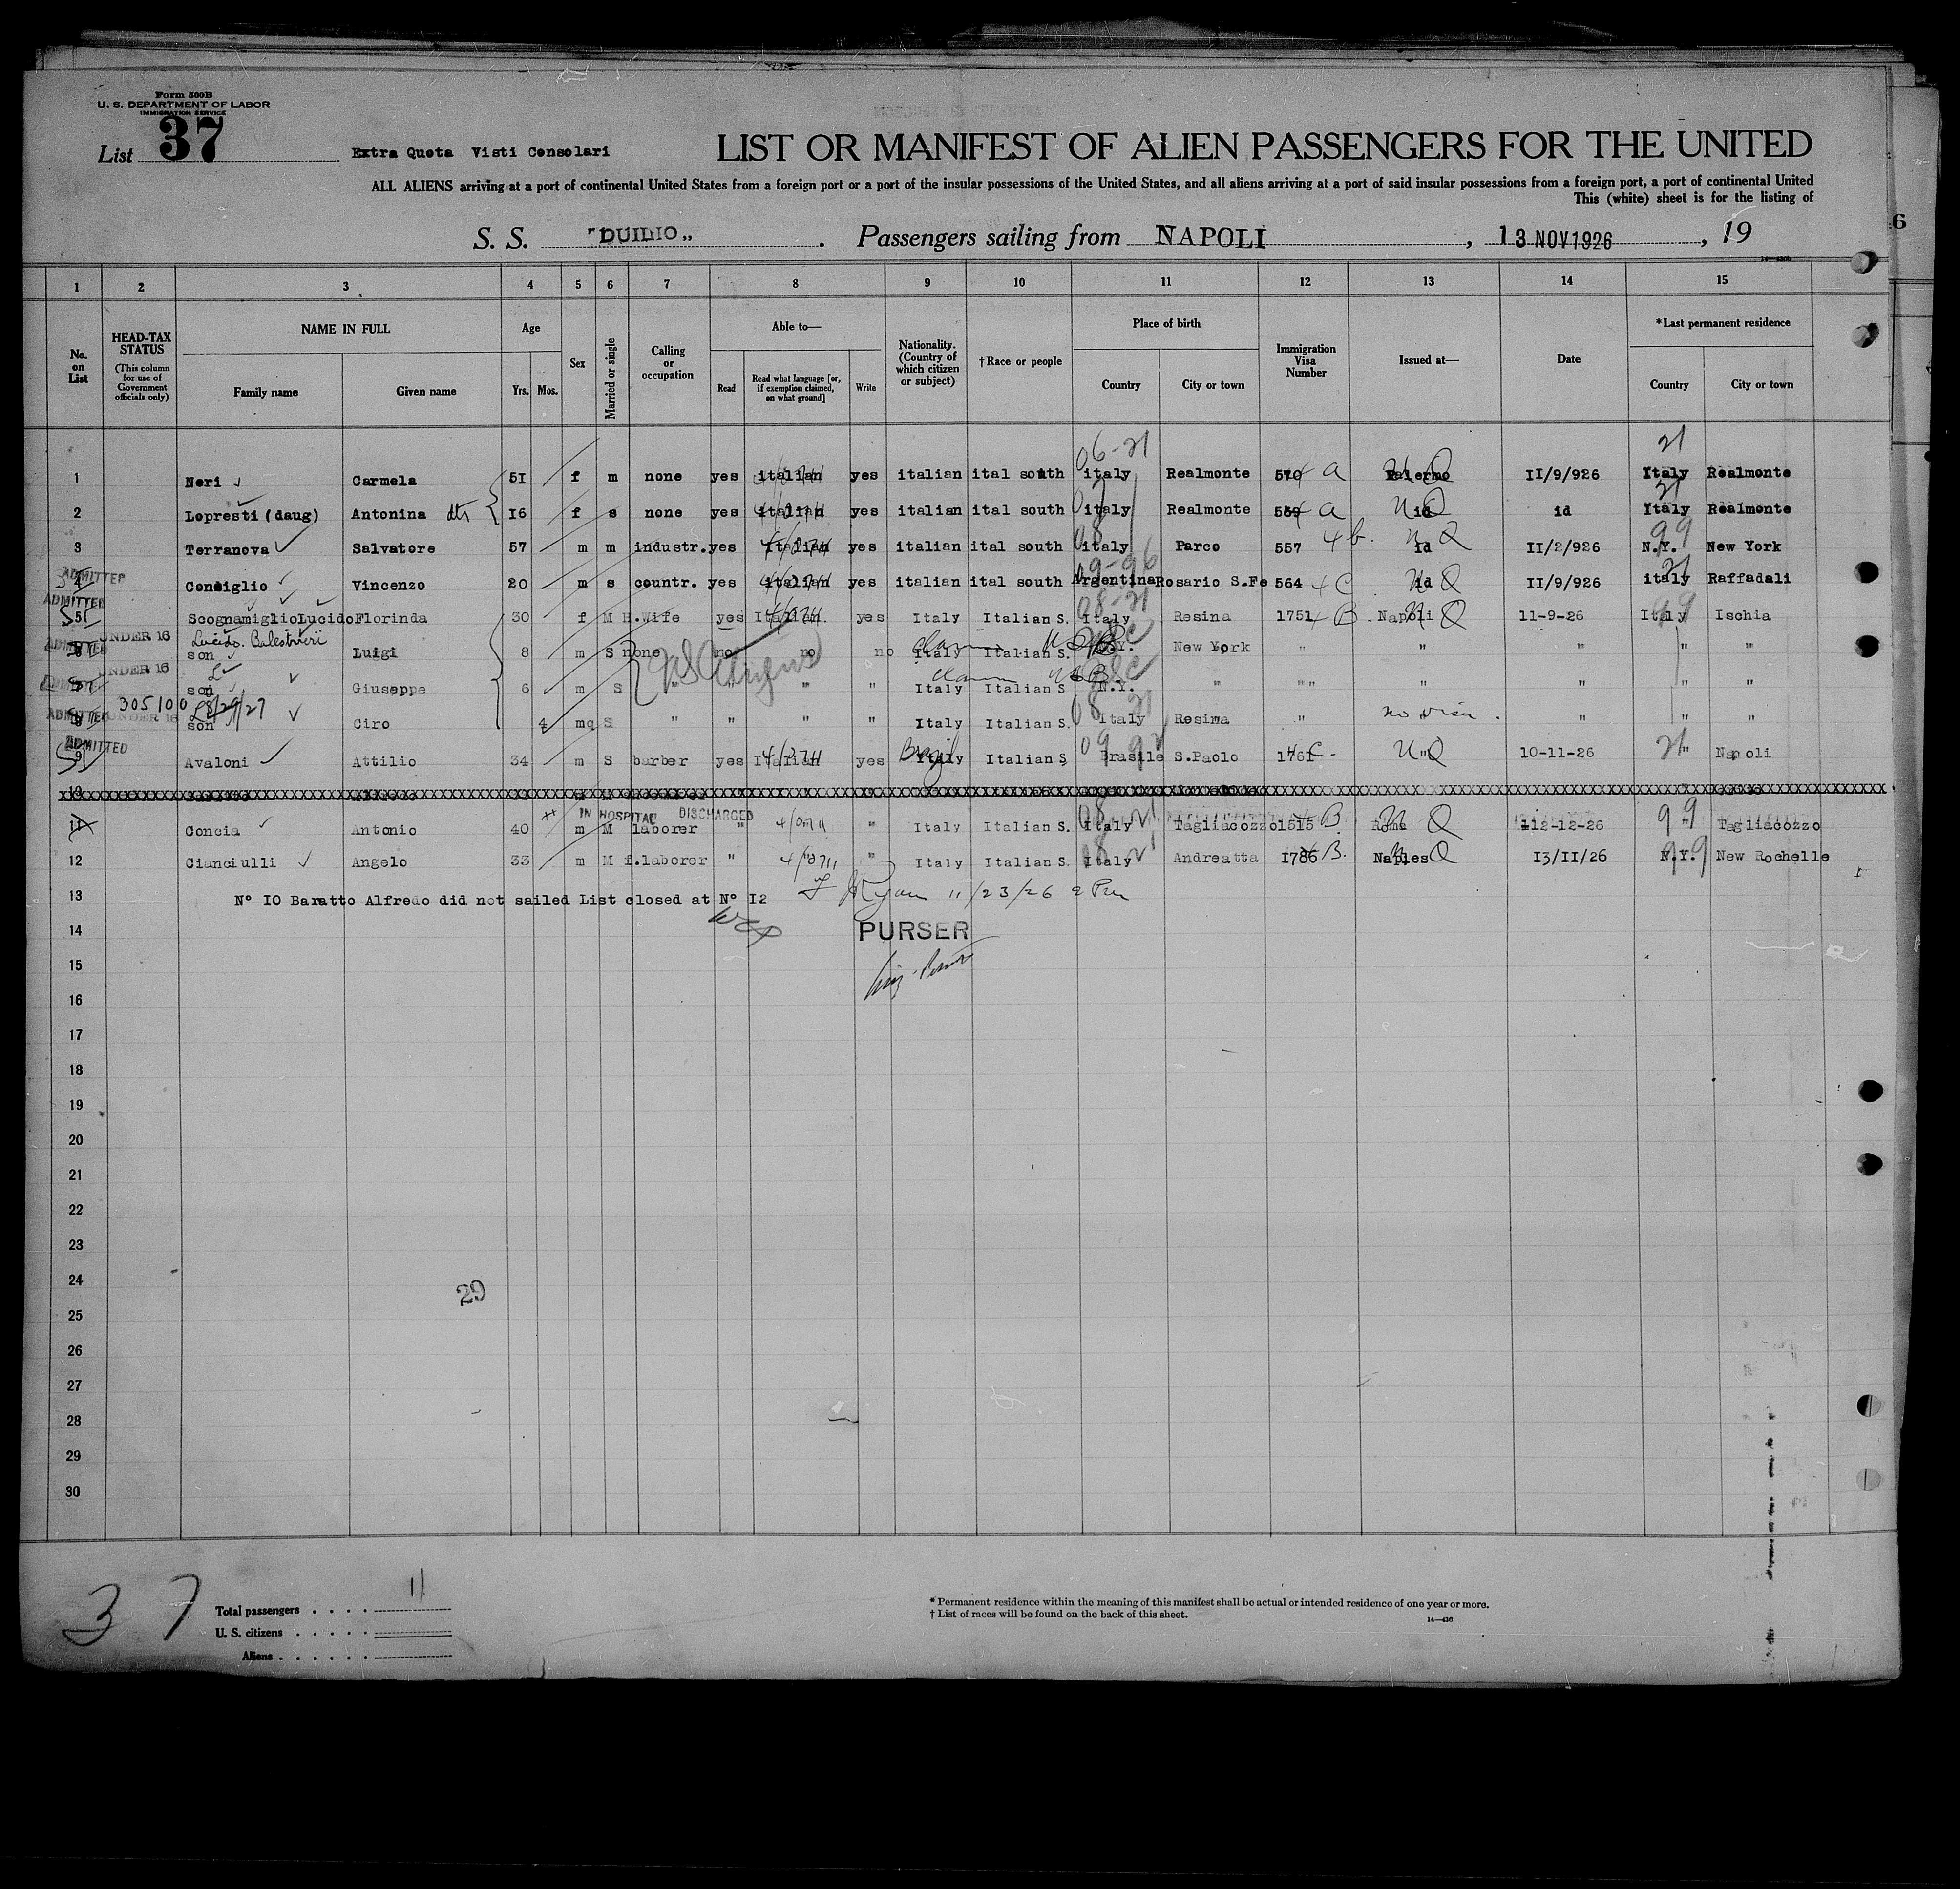 Form 500B
U. S. DEPARTMENT OF LABOR
IMMIGRATION SERVICE
List 37
Extra Quota Visti Consolari
LIST OR MANIFEST OF ALIEN PASSENGERS FOR THE UNITED
ALL ALIENS arriving at a port of continental United States from a foreign port or a port of the insular possessions of the United States, and all aliens arriving at a port of said insular possessions from a foreign port, a port of continental United
This (white) sheet is for the listing of
S. S. "DUILIO„ . Passengers sailing from NAPOLI , 13 NOV 1926 , 19
1 2 3 4 5 6 7 8 9 10 11 12 13 14 15
No. on List
HEAD-TAX STATUS (This column for use of Government officials only)
NAME IN FULL
Family name Given name
Age
Yrs. Mos.
Sex
Married or single
Calling or occupation
Able to—
Read Read what language [or, if exemption claimed, on what ground] Write
Nationality. (Country of which citizen or subject)
†Race or people
Place of birth
Country City or town
Immigration Visa Number
Issued at—
Date
*Last permanent residence
Country City or town
06-21 21
1 Neri Carmela 51 f m none yes italian yes italian ital south italy Realmonte 570 a Palermo Q 11/9/926 Italy Realmonte
2 Lopresti (daug) Antonina dtr 16 f s none yes italian yes italian ital south italy Realmonte 569 a id Q id Italy Realmonte
3 Terranova Salvatore 57 m m industr. yes italian yes italian ital south italy Parco 557 4 b. id Q 11/2/926 N.Y. 99 New York
ADMITTED 4 Condiglio Vincenzo 20 m s countr. yes italian yes italian ital south Argentina Rosario S.Fe 564 4 C id Q 11/9/926 italy Raffadali
ADMITTED 5 Scognamiglio Lucido Florinda 30 f M H.Wife yes Italian. yes Italy Italian S. Italy Resina 1751 4 B Napoli Q 11-9-26 Italy Ischia
ADMITTED 6 UNDER 16 Lucido. Balestrieri son Luigi 8 m S none no no no Italy Italian S. N.Y. New York " " " " "
ADMITTED 7 UNDER 16 son Giuseppe 6 m S " " " " Italy Italian S N.Y. " " " " " "
305100 8/29/27
ADMITTED UNDER 16 son Ciro 4 m S " " " " Italy Italian S. Italy Resina " no visa " " "
U S Citizens
ADMITTED 9 Avaloni Attilio 34 m S barber yes Italian yes Brazil Italy Italian S. Brasile S.Paolo 1761 C - " Q 10-11-26 21 " Napoli
10
IN HOSPITAL DISCHARGED
11 Concia Antonio 40 m M laborer " " Italy Italian S. Italy Tagliacozzo 1515 B Rome Q 12-12-26 99 Tagliacozzo
12 Cianciulli Angelo 33 m M f.laborer " " Italy Italian S. Italy Andreatta 1786 B. Naples Q 13/11/26 N.Y. New Rochelle
13 N° 10 Baratto Alfredo did not sailed List closed at N° 12 Ryan 11/23/26
14 PURSER
15
16
17
18
19
20
21
22
23
24
29
25
26
27
28
29
30
37
Total passengers . . . . 11
U. S. citizens . . . . .
Aliens . . . . . .
* Permanent residence within the meaning of this manifest shall be actual or intended residence of one year or more.
† List of races will be found on the back of this sheet.
14—430